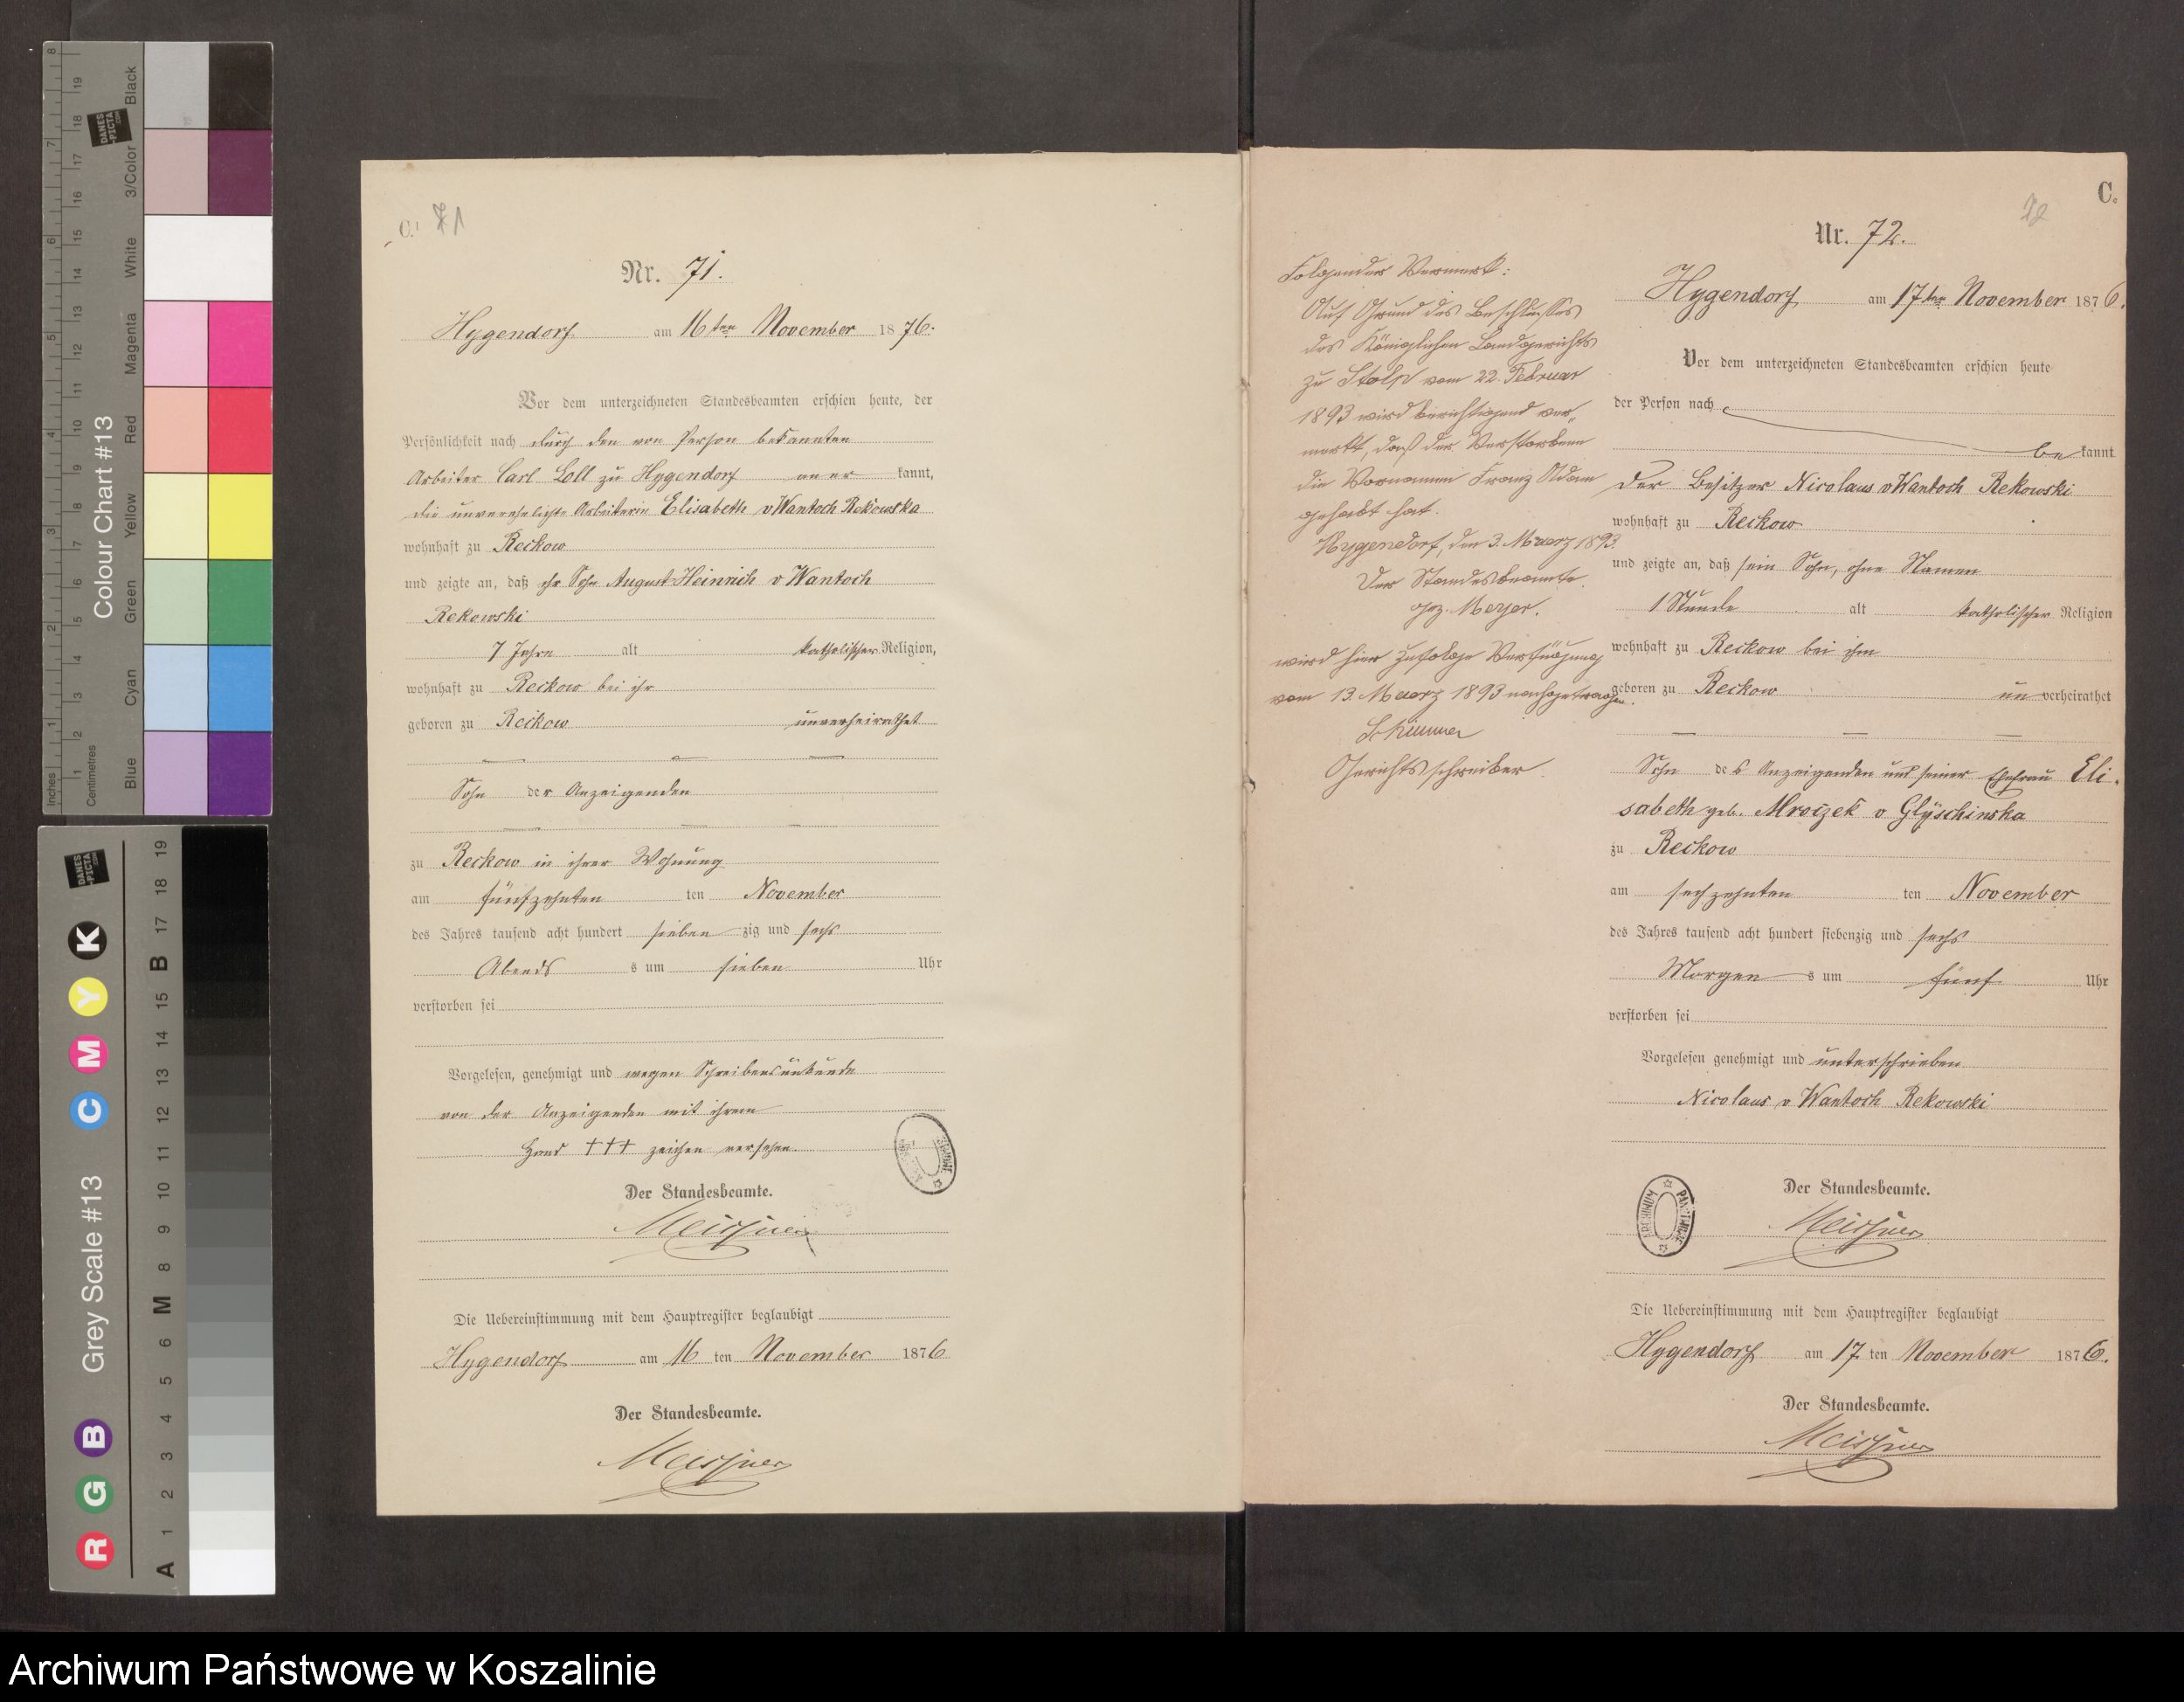 C. 71
Nr. 71.
Hygendorf am 16ten November 1876.
Vor dem unterzeichneten Standesbeamten erschien heute, der
Persönlichkeit nach durch den von Person bekannten
Arbeiter Carl Loll zu Hygendorf anerkannt,
die unverehelichte Arbeiterin Elisabeth v Wantoch Rekowska
wohnhaft zu Reckow
und zeigte an, daß ihr Sohn August Heinrich v Wantoch
Rekowski
7 Jahre alt katholischer Religion,
wohnhaft zu Reckow bei ihr
geboren zu Reckow unverheirathet
Sohn der Anzeigenden
zu Reckow in ihrer Wohnung
am fünfzehnten ten November
des Jahres tausend acht hundert siebenzig und sechs
Abends s um sieben Uhr
verstorben sei
Vorgelesen, genehmigt und wegen Schreibensunkunde
von der Anzeigenden mit ihrem
Hand +++ zeichen versehen.
Der Standesbeamte.
Meissner
Die Uebereinstimmung mit dem Hauptregister beglaubigt
Hygendorf am 16 ten November 1876
Der Standesbeamte.
Meissner
C.
72
Folgender Vermerk:
Auf Grund des Beschlusses
des Königlichen Landgerichts
zu Stolp vom 22. Februar
1893 wird berichtigend ver„
merkt, daß der Verstorbene
die Vornamen Franz Adam
gehabt hat.
Hygendorf, den 3. Maerz 1893.
Der Standesbeamte.
gez. Meyer.
wird hier zufolge Verfügung
vom 13. Maerz 1893 nachgetragen.
Gerichtsschreiber.
Nr. 72.
Hygendorf am 17ten November 1876.
Vor dem unterzeichneten Standesbeamten erschien heute
der Person nach
bekannt
der Besitzer Nicolaus v Wantoch Rekowski
wohnhaft zu Reckow
und zeigte an, daß sein Sohn, ohne Namen
1 Stunde alt katholischer Religion
wohnhaft zu Reckow bei ihm
geboren zu Reckow unverheirathet
Sohn des Anzeigenden und seiner Ehefrau Eli-
sabeth geb. Mroczek v Glyschinska
zu Reckow
am sechzehnten ten November
des Jahres tausend acht hundert siebenzig und sechs
Morgen s um fünf Uhr
verstorben sei
Vorgelesen genehmigt und unterschrieben
Nicolaus v Wantoch Rekowski
Der Standesbeamte.
Meissner
Die Uebereinstimmung mit dem Hauptregister beglaubigt
Hygendorf am 17 ten November 1876.
Der Standesbeamte.
Meissner
Colour Chart #13
Blue Cyan Green Yellow Red Magenta White 3/Color Black
Inches
Centimetres
DANES-PICTA.COM
Grey Scale #13
R G B C M Y K
A 1 2 3 4 5 6 M 8 9 10 11 12 13 14 15 B 17 18 19
Archiwum Państwowe w Koszalinie